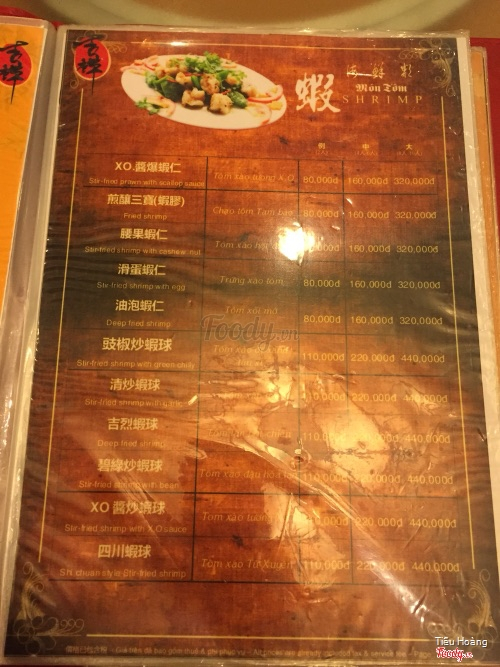 海鮮類
蝦
Món Tôm
SHRIMP
例 中 大
XO.醬爆蝦仁
Stir-fried prawn with scallop sauce
Tôm xào tương X.O
80,000đ 160,000đ 320,000đ
煎釀三寶(蝦膠)
Fried shrimp
Chạo tôm Tam bảo
80,000đ 160,000đ 320,000đ
腰果蝦仁
Stir-fried shrimp with cashew nut
Tôm xào
80,000đ 160,000đ 320,000đ
滑蛋蝦仁
Stir-fried shrimp with egg
Trứng xào tôm
80,000đ 160,000đ 320,000đ
油泡蝦仁
Deep fried shrimp
Tôm xối mỡ
80,000đ 160,000đ 320,000đ
Foody.vn
豉椒炒蝦球
Stir-fried shrimp with green chilly
Tôm xào
110,000đ 220,000đ 440,000đ
清炒蝦球
Stir-fried shrimp with garlic
110,000đ 220,000đ 440,000đ
吉烈蝦球
Deep fried shrimp
440,000đ
碧綠炒蝦球
Stir-fried shrimp with bean
Tôm xào đậu hòa lan
220,000đ 440,000đ
XO 醬炒蝦球
Stir-fried shrimp with X.O sauce
Tôm xào tương
110,000đ 220,000đ 440,000đ
四川蝦球
Shi chuan style Stir-fried shrimp
Tôm xào Tứ Xuyên
110,000đ 220,000đ 440,000đ
Giá trên đã bao gồm thuế & phí phục vụ
Tiểu Hoàng
Foody.vn